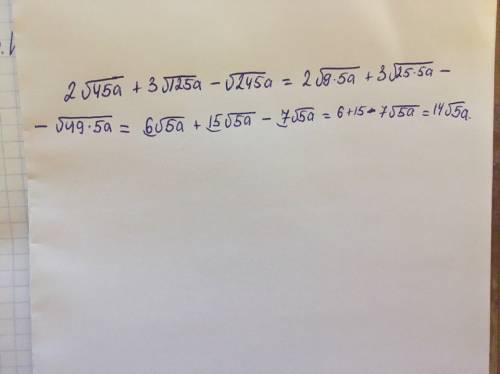 2√45a + 3√125a - √245a = 2√9·5a + 3√25·5a -
- √49·5a = 6√5a + 15√5a - 7√5a = 6+15-7√5a = 14√5a.